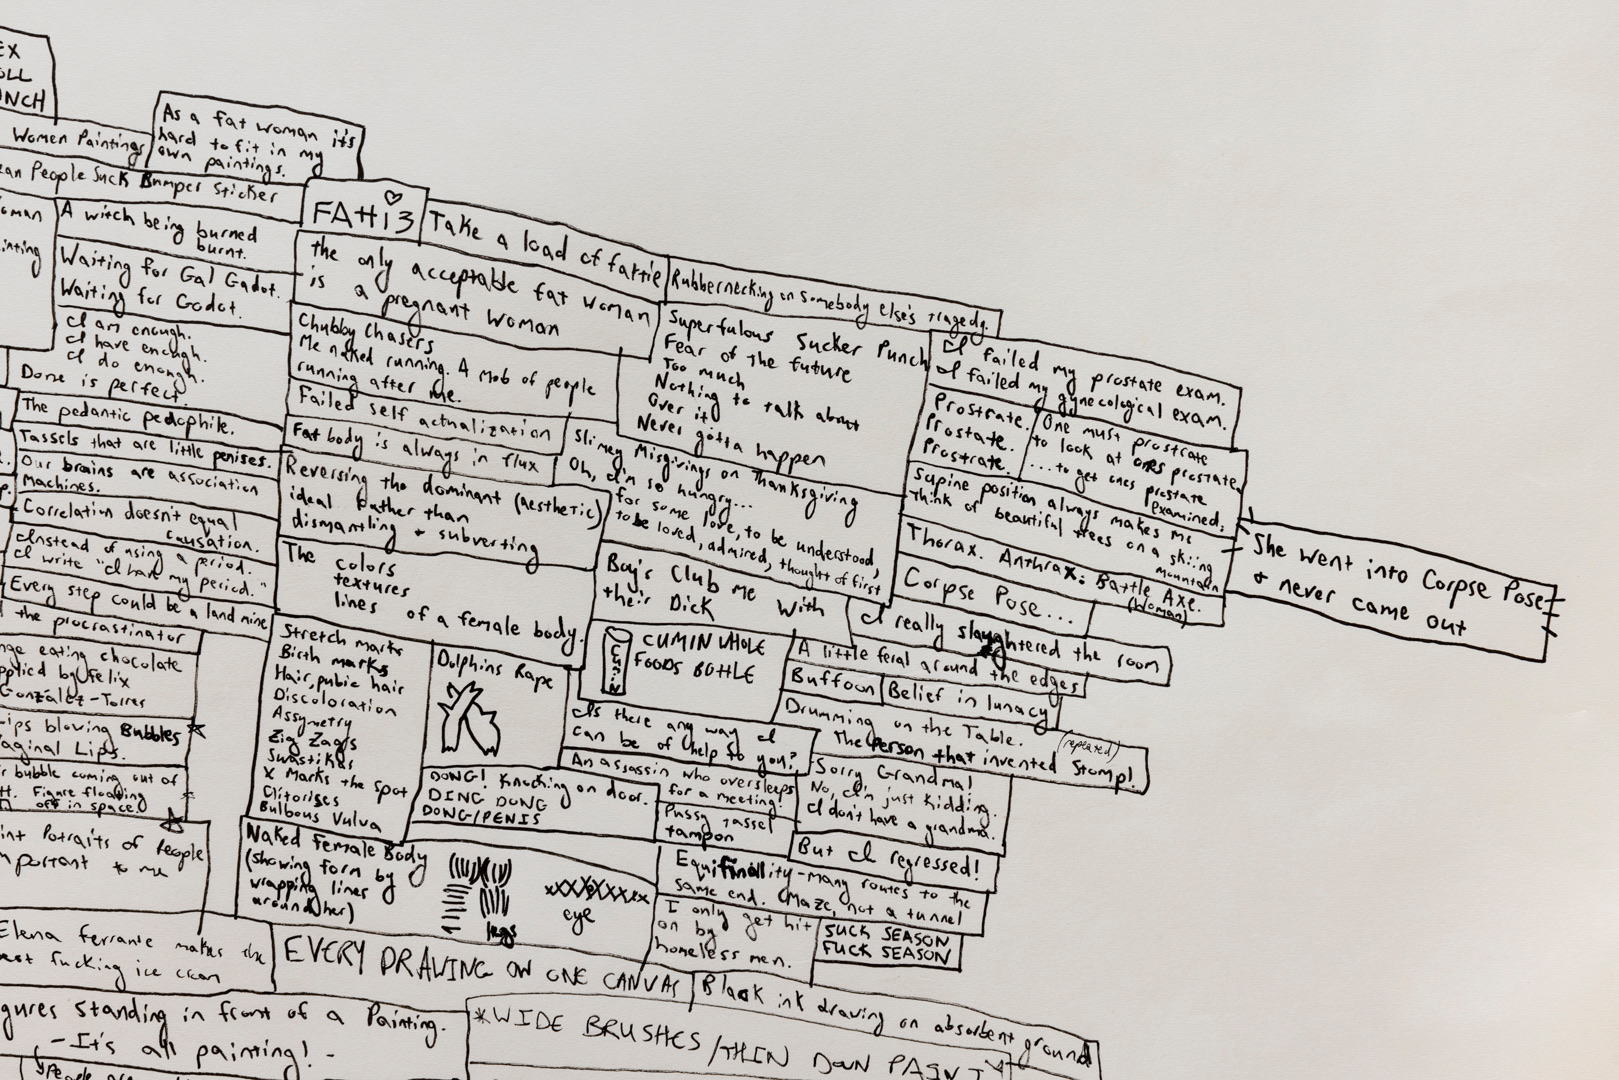 EX
OLL
UNCH
Women Paintings
As a fat woman it's
hard to fit in my
own paintings.
ean People Suck Bumper Sticker
oman
inting
A witch being burned
burnt.
Waiting for Gal Gadot.
Waiting for Godot.
I am enough.
I have enough.
I do enough.
Done is perfect
The pedantic pedophile.
Tassels that are little penises.
Our brains are association
Machines.
Correlation doesn't equal
causation.
Instead of using a period.
I write "I have my period."
Every step could be a land mine
the procrastinator
nge eating chocolate
pplied by Felix
Gonzalez-Torres
Lips blowing Bubbles
Vaginal Lips.
bubble coming out of
Figure floating
off in space.
int Potraits of People
mportant to me
FAtti3
Take a load of fattie
the only acceptable fat woman
is a pregnant woman
Chubby Chasers
Me naked running. A mob of people
running after me.
Failed self actualization
Fat body is always in flux
Reversing the dominant (aesthetic)
ideal rather than
dismantling + subverting
The colors
textures
lines
of a female body.
Stretch marks
Birth marks
Hair, pubic hair
Discoloration
Assymetry
Zig Zags
Swastikas
X Marks the spot
Clitorises
Bulbous Vulva
Dolphins Rape
DONG! Knocking on door.
DING DONG
DONG/PENIS
Naked Female Body
(showing form by
wrapping lines
around her)
legs
xxXXXxxx
eye
Rubbernecking on somebody else's tragedy.
Superfulous Sucker Punch
Fear of the future
Too much
Nothing to talk about
Over it
Never gotta happen
Slimey Misgivings on Thanksgiving
Oh, I'm so hungry...
for some love, to be understood,
to be loved, admired, thought of first
Boy's Club Me With
their Dick
CUMIN
CUMIN WHOLE
FOODS BOTTLE
Is there any way I
can be of help to you?
An assassin who oversleeps
for a meeting!
Pussy tassel
tampon
I failed my prostate exam.
I failed my gynecological exam.
Prostrate.
Prostate.
Prostrate.
One must prostrate
to look at ones prostate
...to get ones prostate
examined.
Supine position always makes me
think of beautiful trees on a skiing
mountain
Thorax. Anthrax. Battle Axe.
(Woman)
Corpse Pose...
She went into Corpse Pose
+ never came out
I really slaughtered the room
A little feral around the edges
Buffoon
Belief in lunacy
Drumming on the Table.
(repeated)
The Person that invented Stomp!
Sorry Grandma!
No, I'm just kidding.
I don't have a grandma.
But I regressed!
Equifinality-many routes to the
same end. (Maze, not a tunnel
I only get hit
on by
homeless men.
SUCK SEASON
FUCK SEASON
Elena Ferrante makes the
best fucking ice cream
EVERY DRAWING ON ONE CANVAS
Black ink drawing on absorbent ground
gures standing in front of a Painting.
-It's all painting!-
*WIDE BRUSHES/THIN DOWN PAINT